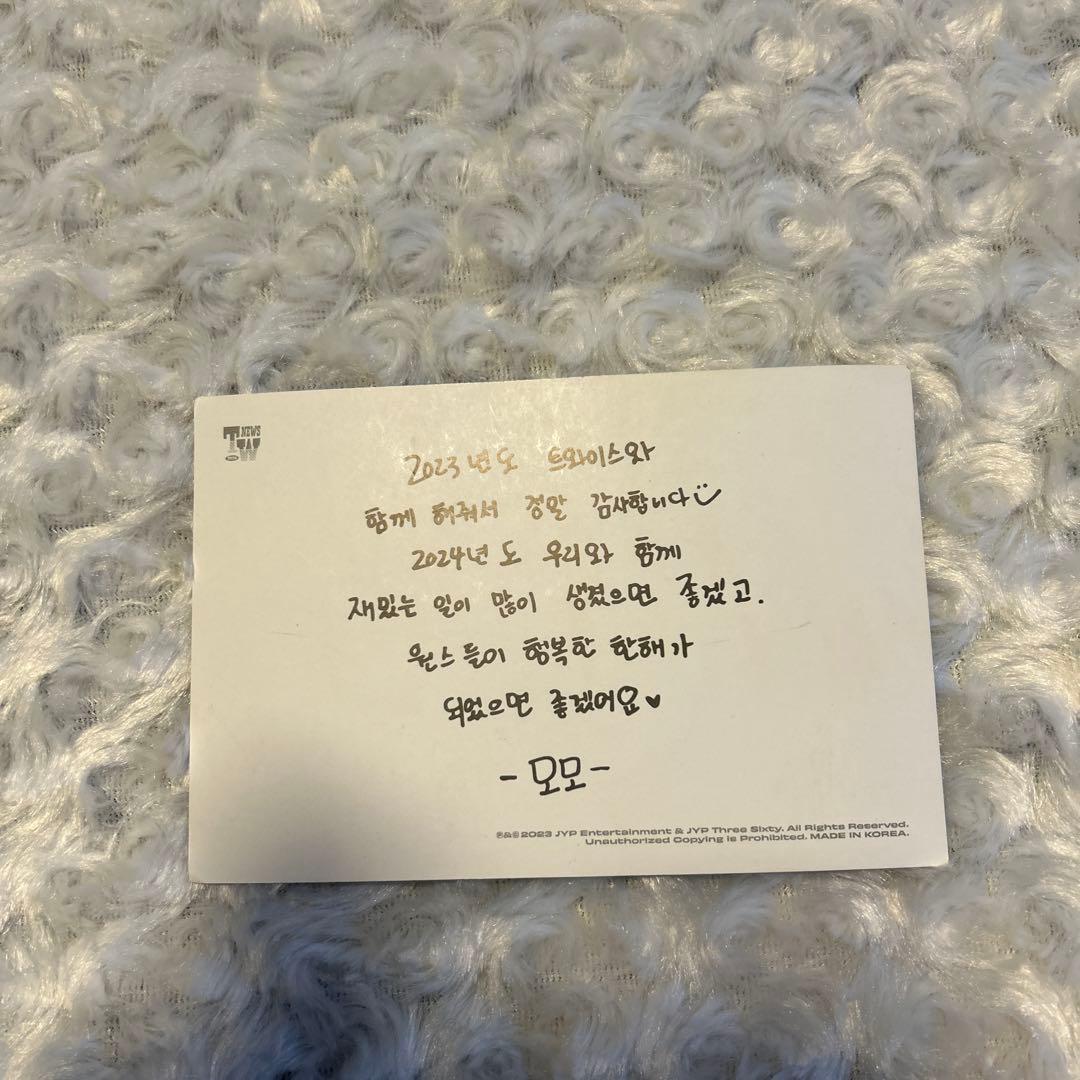 T NEWS
W
2023년도 트와이스와
함께 해줘서 정말 감사합니다
2024년도 우리와 함께
재밌는 일이 많이 생겼으면 좋겠고.
원스들이 행복한 한해가
되었으면 좋겠어요♥
-모모-
℗&© 2023 JYP Entertainment & JYP Three Sixty. All Rights Reserved.
Unauthorized Copying is Prohibited. MADE IN KOREA.